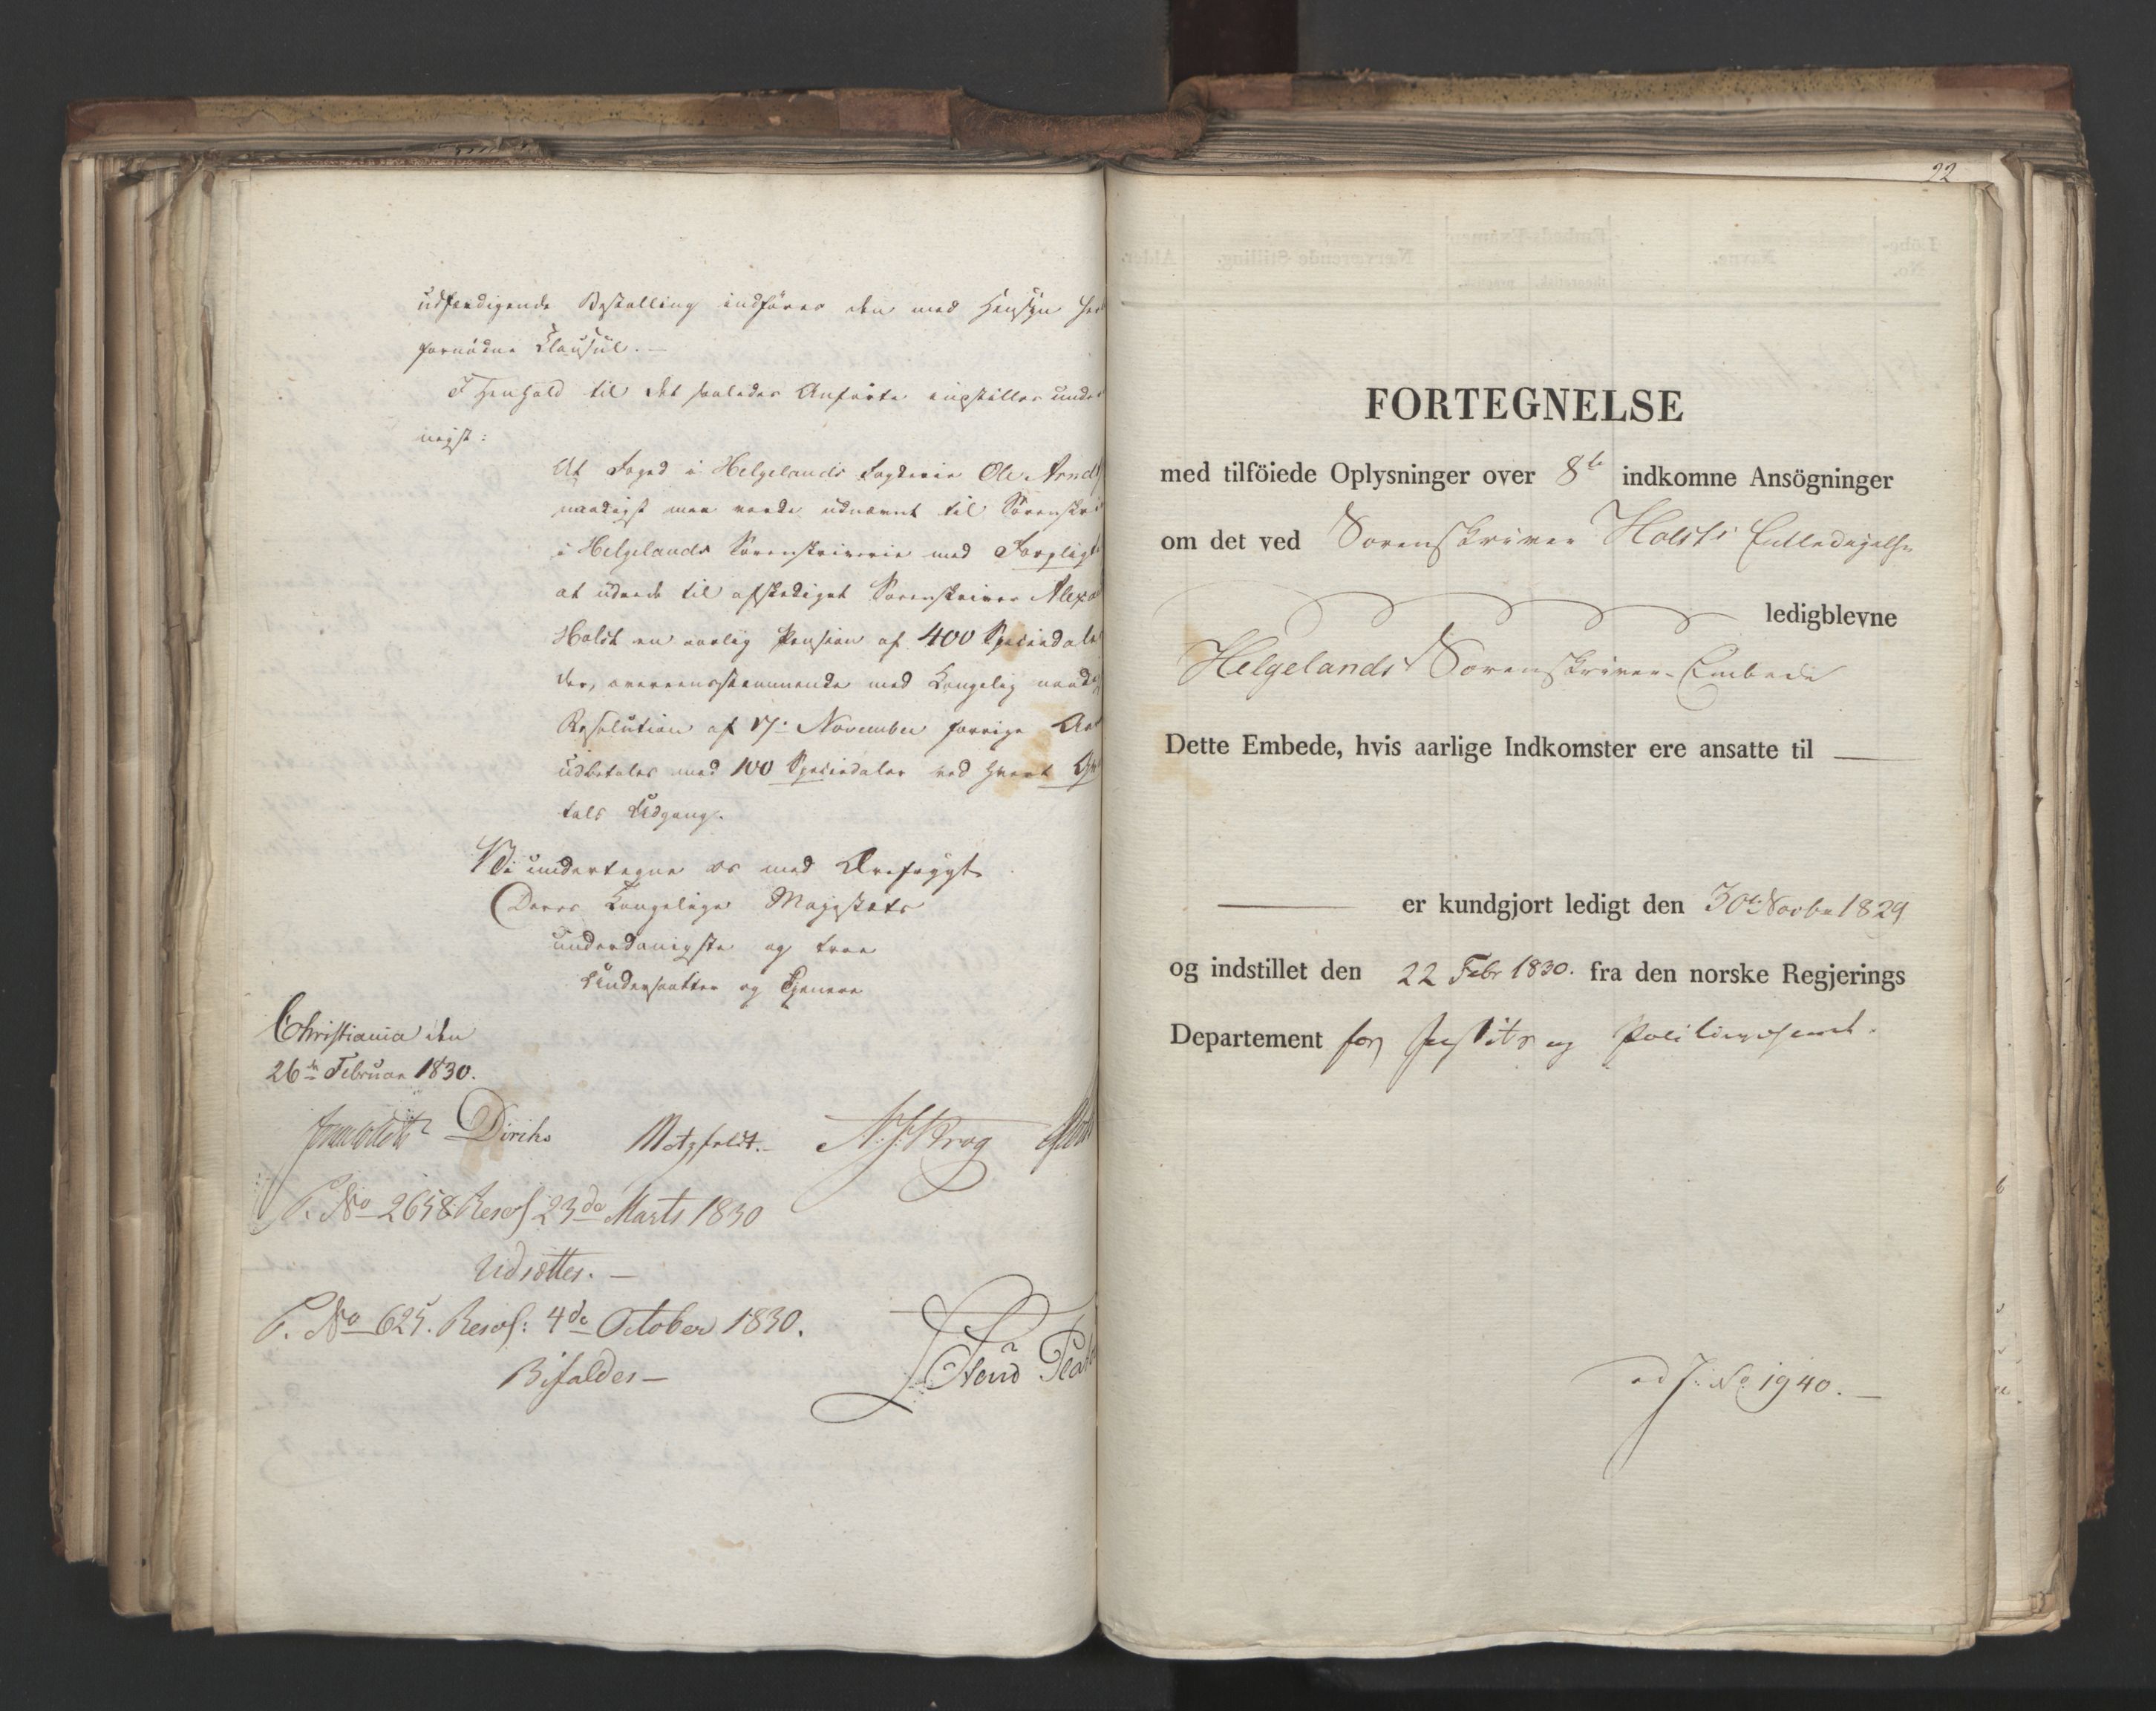 udfærdigende Bestalling indføres den med Hensyn her
fornødne Clausul. –
I Henhold til det saaledes Anførte indstilles under
nigst:
At Foged i Helgelands Fogderie Ole Arndt
naadigst maa vorde udnævnt til Sorenskri
i Helgelands Sorenskriverie med Forpligt
at udrede til afskediget Sorenskriver Alexa
Holst en aarlig Pension af 400 Speciedaler
der, overeensstemmende med Kongelig naadig
Resolution af 17. November forrige Aar
udbetales med 100 Speciedaler ved hvert Qvar
tals Udgang.
Vi undertegne os med Ærefrygt
Deres Kongelige Majestæts
underdanigste og troe
Undersaatter og Tjenere
Christiania den
26de Februar 1830.
Diriks Motzfeldt. – N. J. Krog
P. No 2658 Resol 23de Marts 1830
Udsættes. –
P. No 625. Resol: 4de October 1830.
Bifaldes –
22
FORTEGNELSE
med tilföiede Oplysninger over 8te indkomne Ansögninger
om det ved Sorenskriver Holsts Entledigelse
ledigblevne
Helgelands Sorenskriver-Embede
Dette Embede, hvis aarlige Indkomster ere ansatte til —
— er kundgjort ledigt den 30te Novbr 1829
og indstillet den 22 Febr 1830. fra den norske Regjerings
Departement for Justits og Politievæsenet.
ad J: No 1940. –